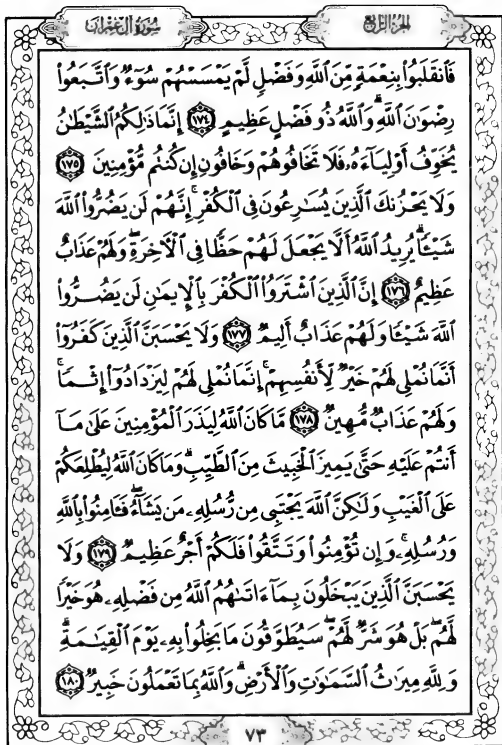 سُورَةُ آلِ عِمْرَان الجُزْءُ الرَّابِعُ
فَٱنقَلَبُوا۟ بِنِعْمَةٍ مِّنَ ٱللَّهِ وَفَضْلٍ لَّمْ يَمْسَسْهُمْ سُوٓءٌ وَٱتَّبَعُوا۟
رِضْوَٰنَ ٱللَّهِ ۗ وَٱللَّهُ ذُو فَضْلٍ عَظِيمٍ ١٧٤ إِنَّمَا ذَٰلِكُمُ ٱلشَّيْطَٰنُ
يُخَوِّفُ أَوْلِيَآءَهُۥ فَلَا تَخَافُوهُمْ وَخَافُونِ إِن كُنتُم مُّؤْمِنِينَ ١٧٥
وَلَا يَحْزُنكَ ٱلَّذِينَ يُسَٰرِعُونَ فِى ٱلْكُفْرِ ۚ إِنَّهُمْ لَن يَضُرُّوا۟ ٱللَّهَ
شَيْـًٔا ۗ يُرِيدُ ٱللَّهُ أَلَّا يَجْعَلَ لَهُمْ حَظًّا فِى ٱلْـَٔاخِرَةِ ۖ وَلَهُمْ عَذَابٌ
عَظِيمٌ ١٧٦ إِنَّ ٱلَّذِينَ ٱشْتَرَوُا۟ ٱلْكُفْرَ بِٱلْإِيمَٰنِ لَن يَضُرُّوا۟
ٱللَّهَ شَيْـًٔا وَلَهُمْ عَذَابٌ أَلِيمٌ ١٧٧ وَلَا يَحْسَبَنَّ ٱلَّذِينَ كَفَرُوٓا۟
أَنَّمَا نُمْلِى لَهُمْ خَيْرٌ لِّأَنفُسِهِمْ ۚ إِنَّمَا نُمْلِى لَهُمْ لِيَزْدَادُوٓا۟ إِثْمًا ۚ
وَلَهُمْ عَذَابٌ مُّهِينٌ ١٧٨ مَّا كَانَ ٱللَّهُ لِيَذَرَ ٱلْمُؤْمِنِينَ عَلَىٰ مَآ
أَنتُمْ عَلَيْهِ حَتَّىٰ يَمِيزَ ٱلْخَبِيثَ مِنَ ٱلطَّيِّبِ ۗ وَمَا كَانَ ٱللَّهُ لِيُطْلِعَكُمْ
عَلَى ٱلْغَيْبِ وَلَٰكِنَّ ٱللَّهَ يَجْتَبِى مِن رُّسُلِهِۦ مَن يَشَآءُ ۖ فَـَٔامِنُوا۟ بِٱللَّهِ
وَرُسُلِهِۦ ۚ وَإِن تُؤْمِنُوا۟ وَتَتَّقُوا۟ فَلَكُمْ أَجْرٌ عَظِيمٌ ١٧٩ وَلَا
يَحْسَبَنَّ ٱلَّذِينَ يَبْخَلُونَ بِمَآ ءَاتَىٰهُمُ ٱللَّهُ مِن فَضْلِهِۦ هُوَ خَيْرًا
لَّهُم ۖ بَلْ هُوَ شَرٌّ لَّهُمْ ۖ سَيُطَوَّقُونَ مَا بَخِلُوا۟ بِهِۦ يَوْمَ ٱلْقِيَٰمَةِ ۗ
وَلِلَّهِ مِيرَٰثُ ٱلسَّمَٰوَٰتِ وَٱلْأَرْضِ ۗ وَٱللَّهُ بِمَا تَعْمَلُونَ خَبِيرٌ ١٨٠
٧٣